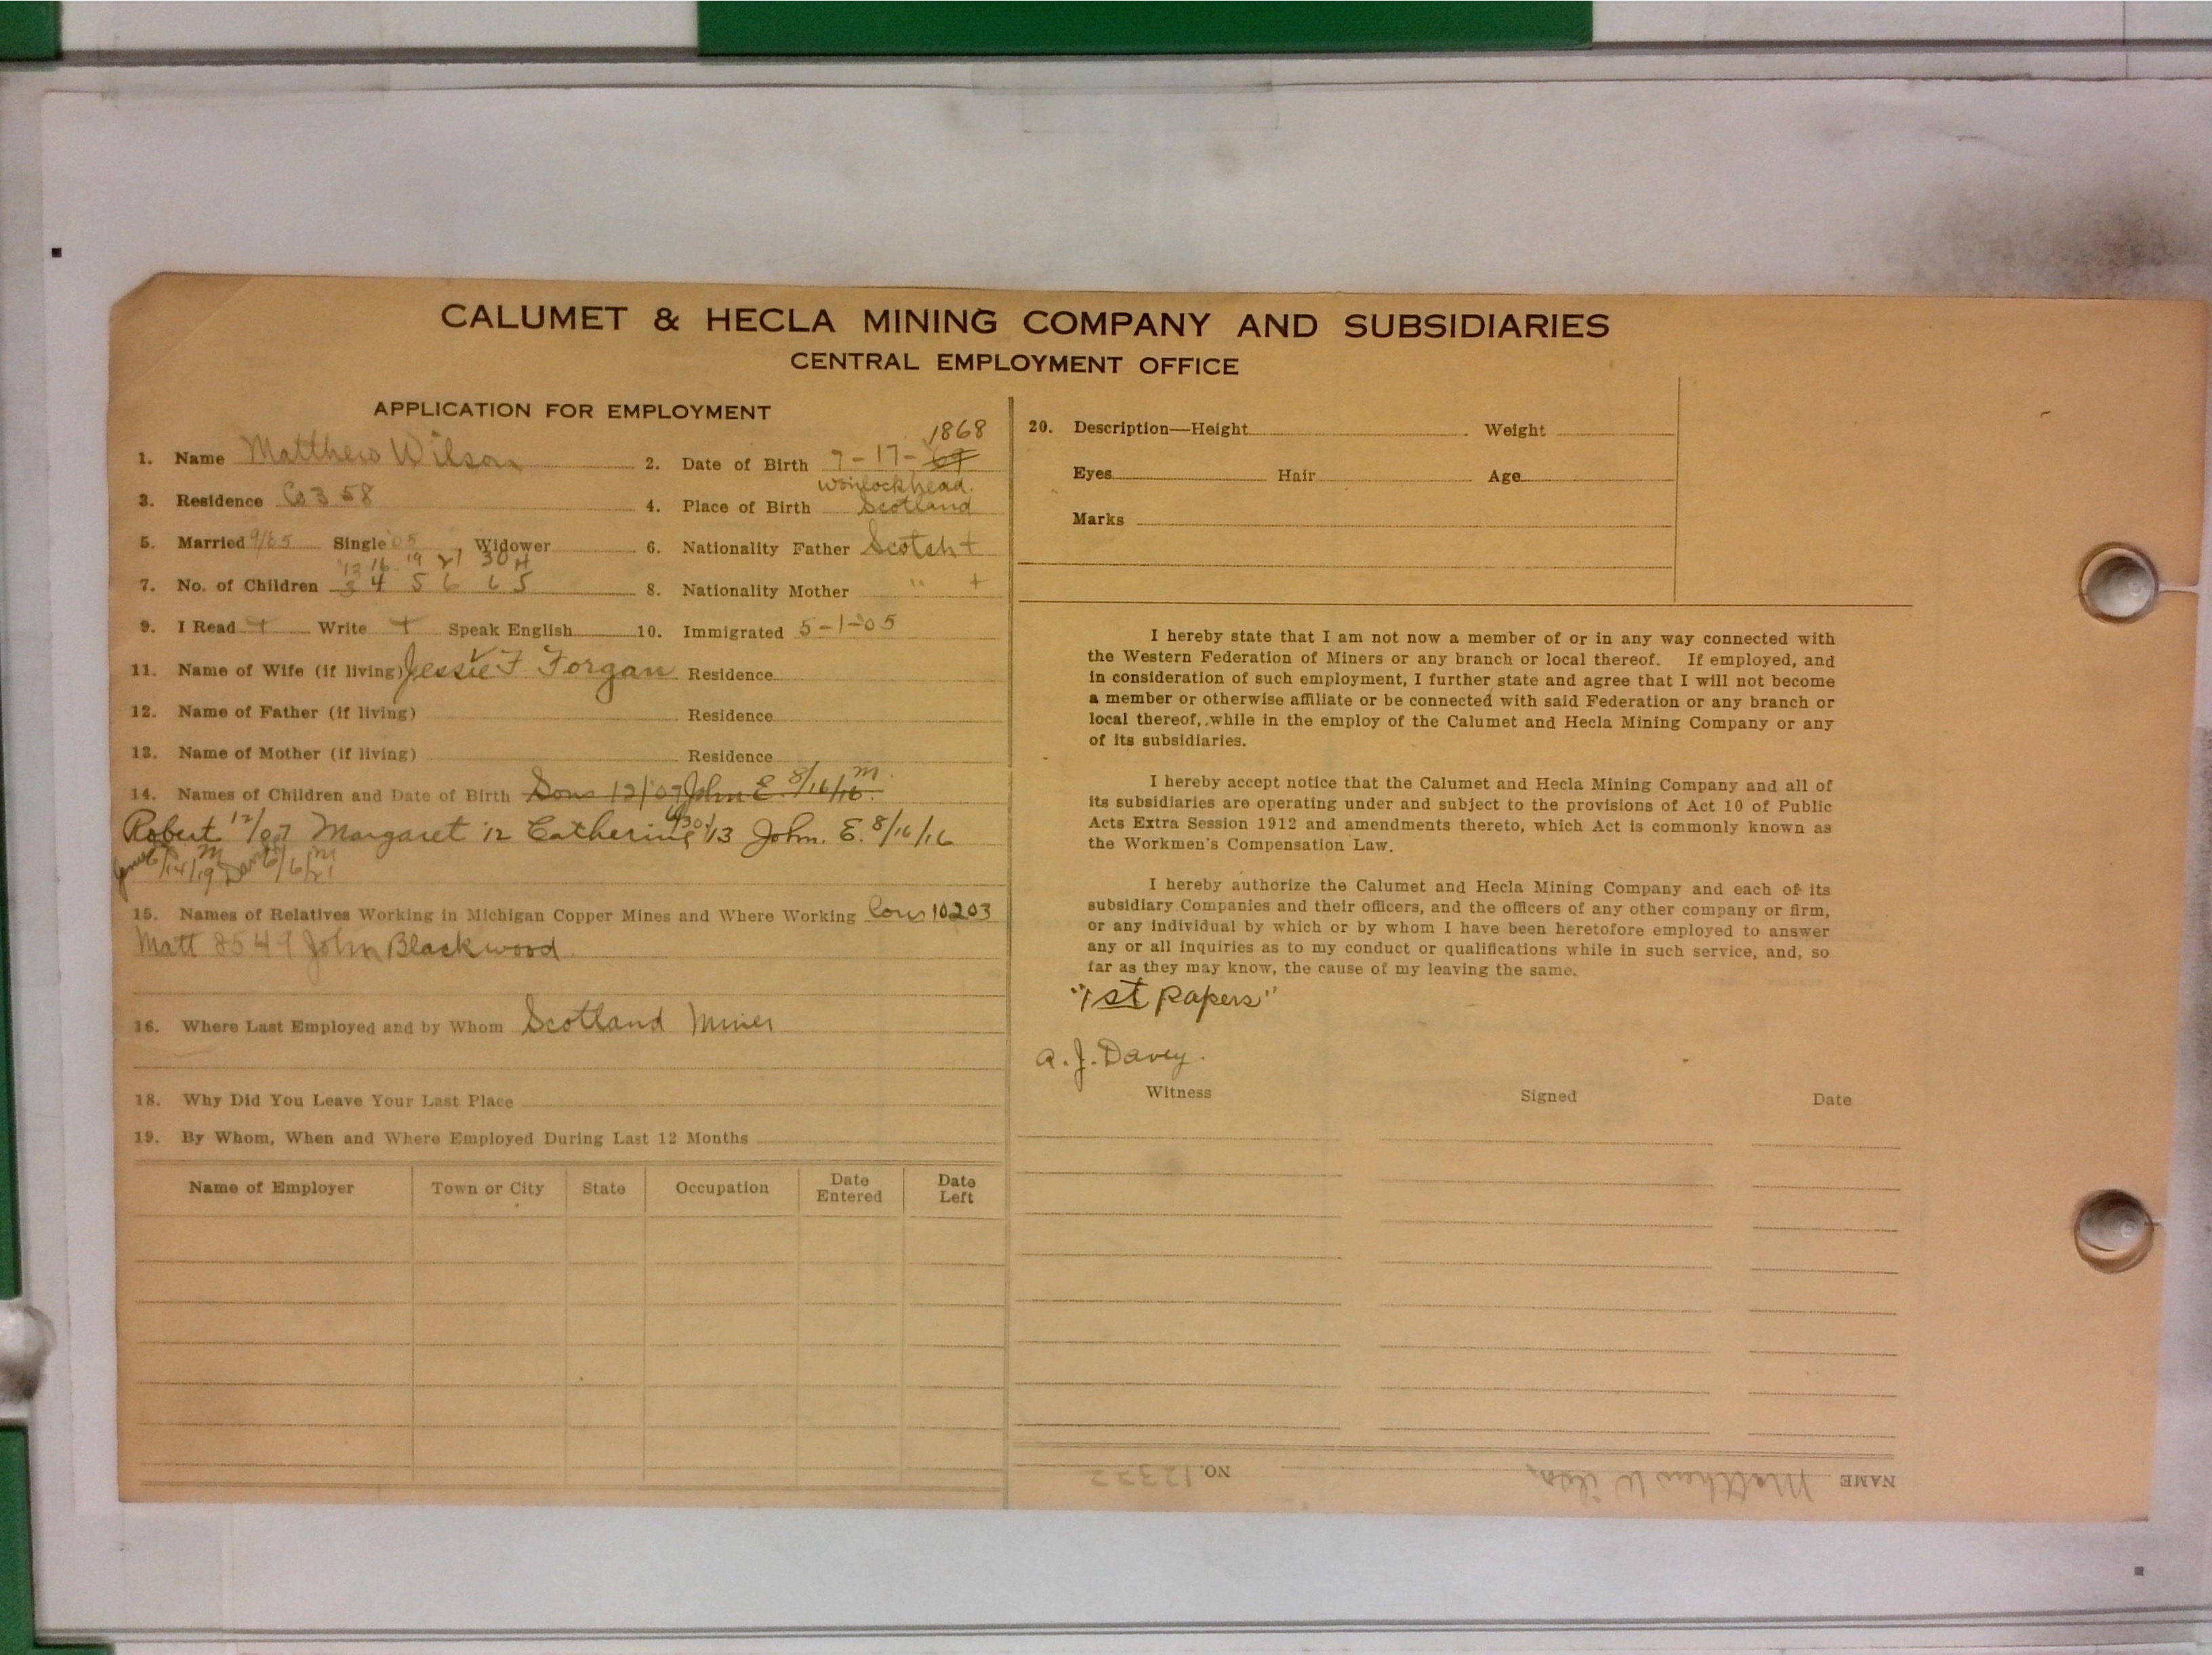 CALUMET & HECLA MINING COMPANY AND SUBSIDIARIES
CENTRAL EMPLOYMENT OFFICE
APPLICATION FOR EMPLOYMENT
1. Name Matthew Wilson 2. Date of Birth 9-17-69 1868
3. Residence Co 358 4. Place of Birth Wonlockhead. Scotland
5. Married Single 05 Widower 6. Nationality Father Scotch +
'13 16 19 21 30
7. No. of Children 3 4 5 6 6 5 8. Nationality Mother " +
9. I Read + Write + Speak English 10. Immigrated 5-1-05
11. Name of Wife (if living) Jessie F Forgan Residence
12. Name of Father (if living) Residence
13. Name of Mother (if living) Residence
14. Names of Children and Date of Birth Son 12/07 John E 8/16/16. M.
Robert 12/07 Margaret '12 Catherine 6/30/13 John. E. 8/16/16
6/14/19 M 6/21 M
15. Names of Relatives Working in Michigan Copper Mines and Where Working Cous 10203
Matt 8549 John Blackwood.
16. Where Last Employed and by Whom Scotland Miner
18. Why Did You Leave Your Last Place
19. By Whom, When and Where Employed During Last 12 Months
Name of Employer Town or City State Occupation Date Entered Date Left
20. Description—Height Weight
Eyes Hair Age
Marks
I hereby state that I am not now a member of or in any way connected with
the Western Federation of Miners or any branch or local thereof. If employed, and
in consideration of such employment, I further state and agree that I will not become
a member or otherwise affiliate or be connected with said Federation or any branch or
local thereof, while in the employ of the Calumet and Hecla Mining Company or any
of its subsidiaries.
I hereby accept notice that the Calumet and Hecla Mining Company and all of
its subsidiaries are operating under and subject to the provisions of Act 10 of Public
Acts Extra Session 1912 and amendments thereto, which Act is commonly known as
the Workmen's Compensation Law.
I hereby authorize the Calumet and Hecla Mining Company and each of its
subsidiary Companies and their officers, and the officers of any other company or firm,
or any individual by which or by whom I have been heretofore employed to answer
any or all inquiries as to my conduct or qualifications while in such service, and, so
far as they may know, the cause of my leaving the same.
"1st papers"
A. J. Davey.
Witness Signed Date
NAME Matthew Wilson NO. 12322